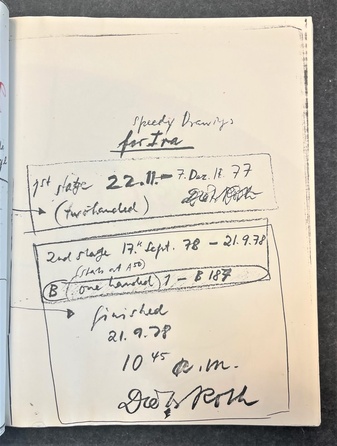 Speedy Drawings
for Ira
1st stage 22.11. – 7. Dez. 77
Diet Roth
(twohanded)
2nd stage 17. Sept. 78 – 21.9.78
(starts at 150)
B (one handed) 1 – B 187
finished
21.9.78
10 45 a.m.
Diet Roth